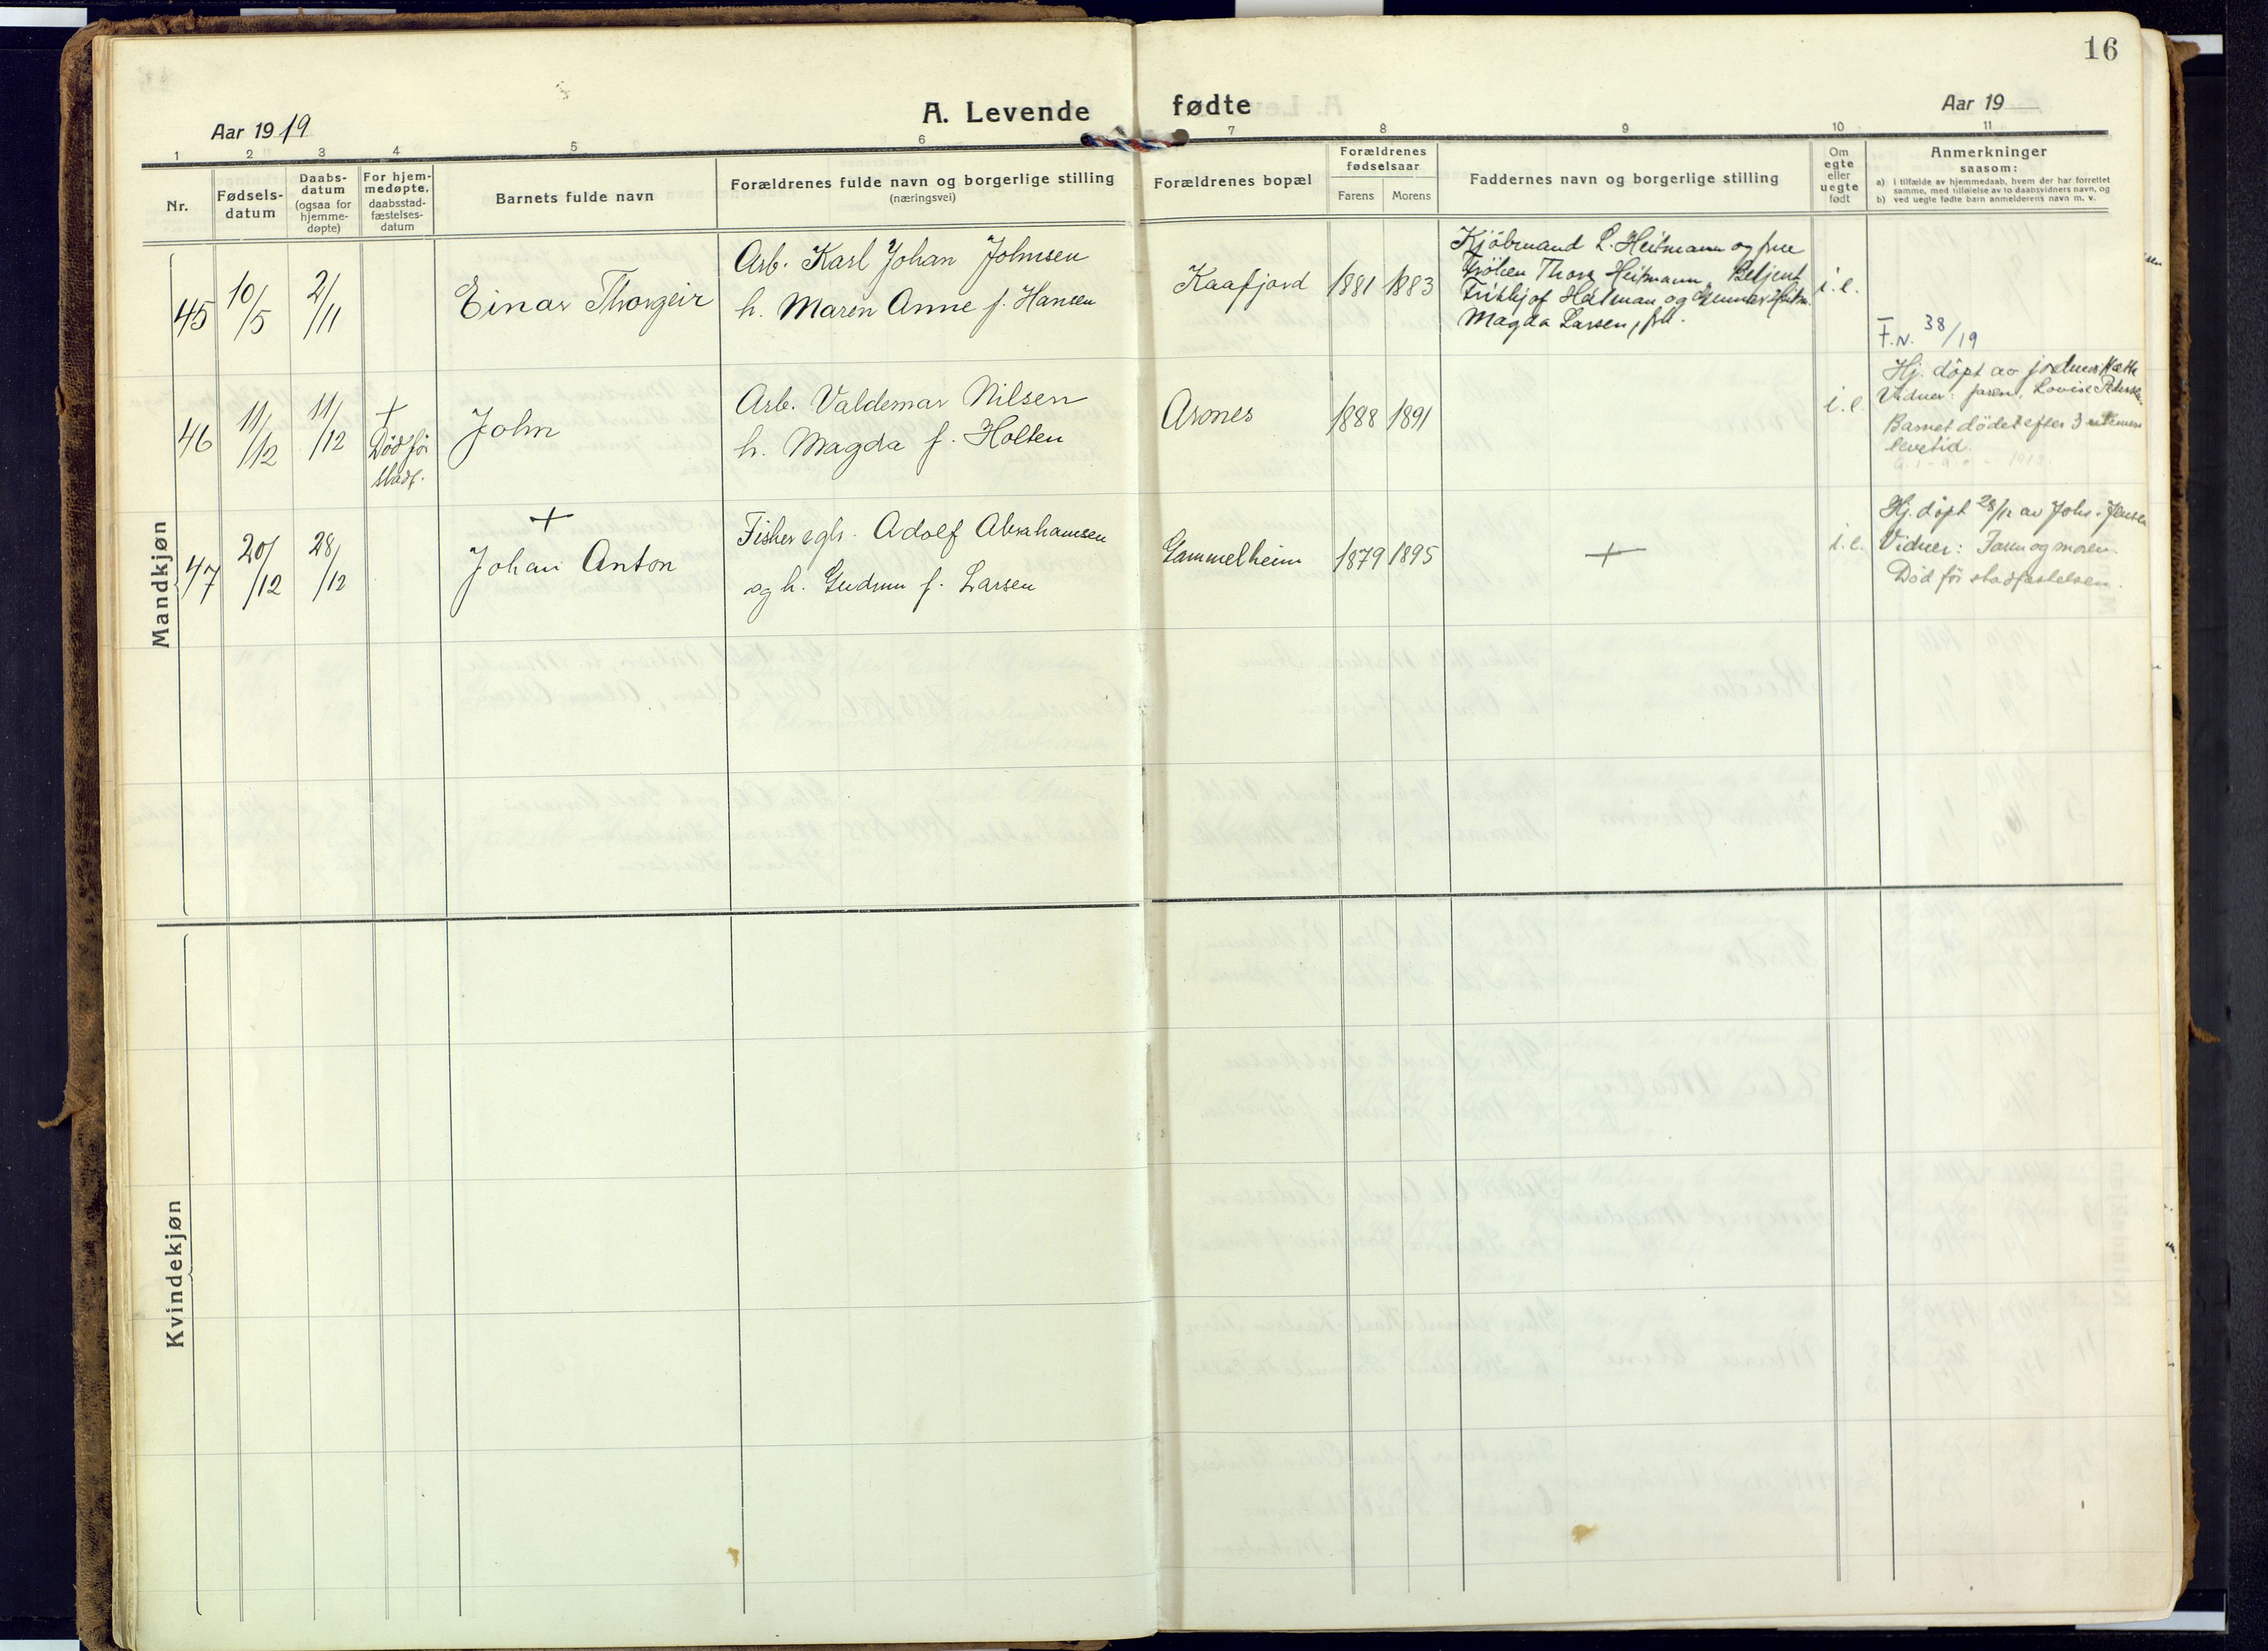 16
A. Levende fødte
Aar 1919
Aar 19
1 2 3 4 5 6 7 8 9 10 11
Nr.
Fødsels-
datum
Daabs-
datum
(ogsaa for
hjemme-
døpte)
For hjem-
medøpte,
daabsstad-
fæstelses-
datum
Barnets fulde navn
Forældrenes fulde navn og borgerlige stilling
(næringsvei)
Forældrenes bopæl
Forældrenes
fødselsaar
Farens Morens
Faddernes navn og borgerlige stilling
Om
egte
eller
uegte
født
Anmerkninger
saasom:
a) i tilfælde av hjemmedaab, hvem der har forrettet
samme, med tilføielse av to daabsvidners navn, og
b) ved uegte fødte barn anmelderens navn m. v.
Mandkjøn
45
10/5
2/11
Einar Thorgeir
Arb. Karl Johan Johnsen
h. Maren Anne f. Hansen
Kaafjord
1881 1883
Kjøbmand L. Heitmann og frue
Frøken Thora Heitmann, Betjent
Frithjof Heitman, og
Magda Larsen, frk.
i.e.
F.N. 38/19
46
11/12
11/12
+
Død før
stadf.
John
Arb. Valdemar Nilsen
h. Magda f. Holten
Arones
1888 1891
i.e.
Hj. døpt av jordmor
Vidner: faren, Lovise
Barnet døde efter 3
levetid.
47
20/12
28/12
+
Johan Anton
Fisker egb. Adolf Abrahamsen
og h. Gudrun f. Larsen
Gammelheim
1879 1895
+
i.e.
Hj. døpt 28/12 av Johs. Jensen
Vidner: Faren og moren.
Død før stadfæstelsen.
Kvindekjøn